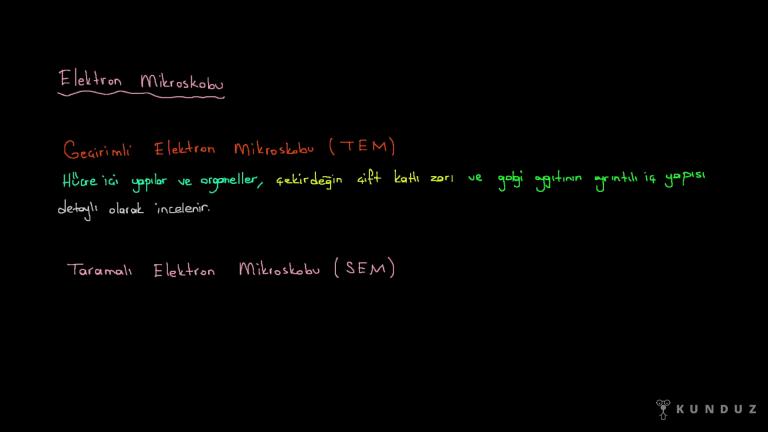 Elektron Mikroskobu
Geçirimli Elektron Mikroskobu (TEM)
Hücre içi yapılar ve organeller, çekirdeğin çift katlı zarı ve golgi aygıtının ayrıntılı iç yapısı
detaylı olarak incelenir.
Taramalı Elektron Mikroskobu (SEM)
KUNDUZ